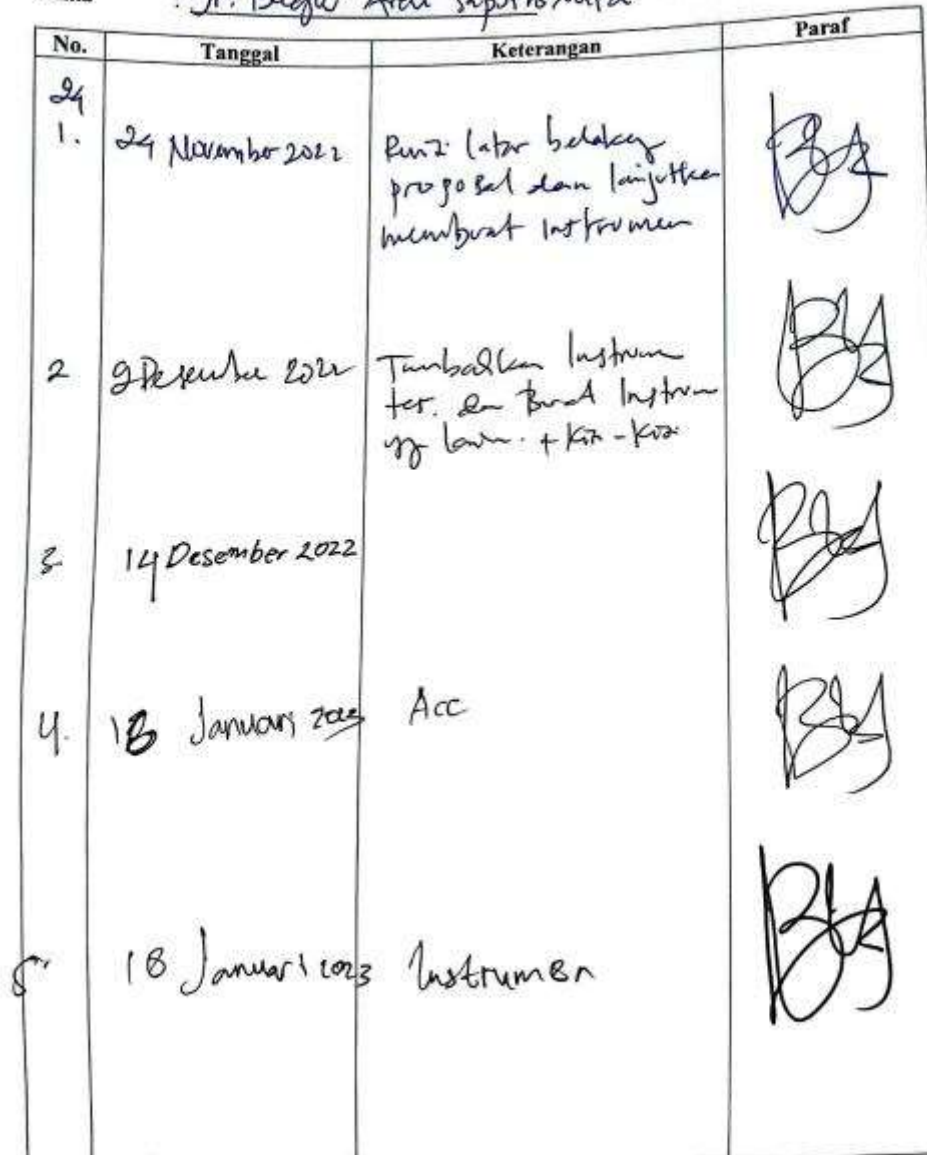 No. Tanggal Keterangan Paraf
24
1. 24 November 2022 Revisi latar belakang
proposal dan lanjutkan
membuat instrumen
2 9 Desember 2022 Tambahkan Instrumen
tes. dan Buat Instrumen
yg lain. + Kisi-Kisi
3. 14 Desember 2022
4. 18 Januari 2023 Acc
5 18 Januari 2023 Instrumen